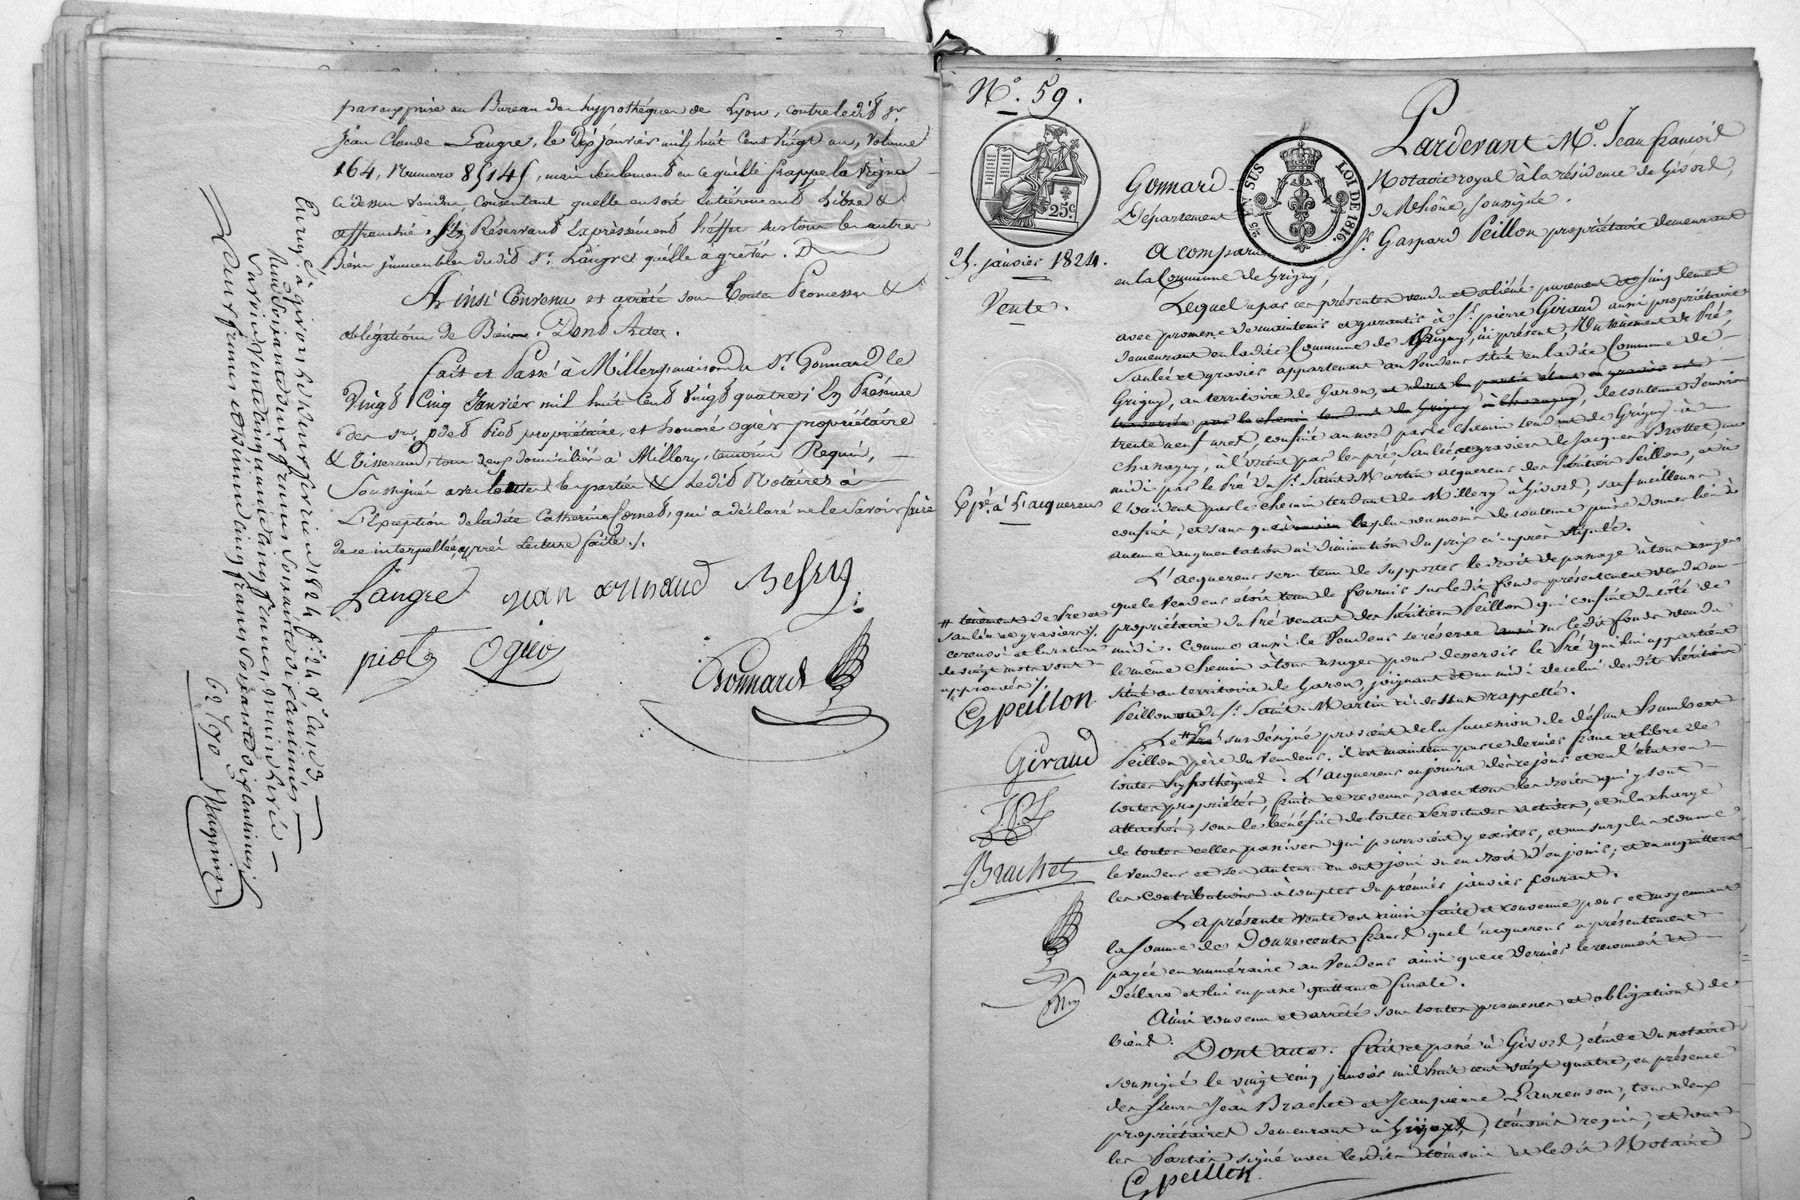 par oup prise au Bureau des hypothèques de Lyon, contre ledit Sr.
Jean Claude Langre, le Dix janvier mil huit Cent vingt un, volume
164, Numero 85145, mais seulement en ce quelle frappe la vigne
ci dessus vendue consentant quelle en soit Entièrement Libre &
affranchie. Se Réservant Expressément l'effet sur tous les autres
Biens immeubles dudit Sr. Langre qu'elle a grévés. D
Ainsi Convenu et arrêté sous toutes Promesses &
obligations de Biens. Dont Acte.
fait et Passé à Millery maison du Sr. Gonnard le
Vingt Cinq Janvier mil huit Cent vingt quatre; En Présence
des srs. Piot propriétaire, et honoré Ogier propriétaire
& Tisserand, tous deux domiciliés à Millery, témoins Requis,
Soussignés avec les parties & ledit Notaire à
L'Exception de ladite Catherine Cornet, qui a déclaré ne le savoir faire
de ce interpellée, après Lecture faite ./.
Langre jean armand Besson
piot Ogier
Gonnard
Enregé. à givors le février 1824 fo. 24 Vo. Cases
Reçu soixante deux francs soixante dix centimes
savoir Vente cinquante cinq francs
Deux francs et Décime cinq francs soixante dix centimes
62f 70 Magnin
No. 59.
25c
25 EN SUS
LOI DE 1816.
25. janvier 1824.
Vente.
Expé. à l'acquereur
Pardevant Me. Jean françois
Gonnard Notaire royal à la résidence de Givors,
Département du Rhône, soussigné.
A comparu Sr. Gaspard Peillon propriétaire demeurant
en la Commune de Grigny,
Lequel a par ces présentes vendu et aliéné purement et simplement
avec promesse de maintenir et garantir à Sr. pierre Giraud aussi propriétaire
demeurant en ladite Commune de Grigny, ici présent, Un tènement de Pré,
Saulée et graviers appartenant au Vendeur situé en ladite Commune de
Grigny, au territoire de Garon, et dont la partie étant en gravier est
traversée par le chemin tendant de Grigny à chassagny, de contenue d'environ
trente neuf ares, confiné au nord par le chemin tendant de Grigny à
chassagny, à l'orient par les pré Saulée et graviers de Jacques Brottet, au
midi par le Pré du Sr. Saint Martin acquereur des héritiers Peillon, et à
l'occident par le chemin tendant de Millery à Givors, sauf meilleurs
confins, et sans que le plus ou moins de contenue puisse donner lieu à
aucune augmentation ni diminution du prix ci-après stipulé.
L'acquereur sera tenu de supporter le droit de passage à tous usages
que le Vendeur etoit tenu de fournir sur ledit fonds présentement vendu au
propriétaire du Pré venant des héritiers Peillon qui confine du côté de
midi. Comme aussi le Vendeur se réserve sur ledit fonds vendu
le même chemin à tous usages pour desservir le Pré qui lui appartient
situé au territoire de Garon, joignant au midi de celui desdits héritiers
Peillon ou du Sr. Saint Martin ci-dessus rappellé.
Le # Pré sus désigné provient de la succession de défunt humbert
Peillon père du Vendeur. il est maintenu par ce dernier franc et libre de
toutes hypothèques. L'acquereur en jouira dès ce jour et en l'état en
toutes propriétés, fruits et revenus, avec tous les droits qui y sont
attachés, sous le bénéfice de toutes servitudes actives, et à la charge
de toutes celles passives qui pourroient y exister, et au surplus comme
le vendeur et ses auteurs en ont joui ou eu droit d'en jouir; et en acquittera
les contributions à compter du premier janvier courant.
La présente vente est ainsi faite et convenue pour et moyennant
la somme de Douze cents francs que l'acquereur a présentement
payée en numéraire au Vendeur ainsi que ce dernier le reconnoit et
déclare et lui en passe quittance finale.
Ainsi convenu et arrêté sous toutes promesses et obligations de
biens.
Dont acte. fait et passé à Givors, étude du notaire
soussigné le vingt cinq janvier mil huit cent vingt quatre, en présence
des sieurs Jean Brachet et Jean pierre Laurenson, tous deux
propriétaires demeurant à Givors, témoins requis, et ont
les Parties signé avec lesdits témoins et ledit Notaire
G peillon
# tènement de Pré et
saulée et graviers /.
ci dessus et la rature
de vingt mots sont
approuvés /.
G peillon.
Giraud
J.P.L
Brachet